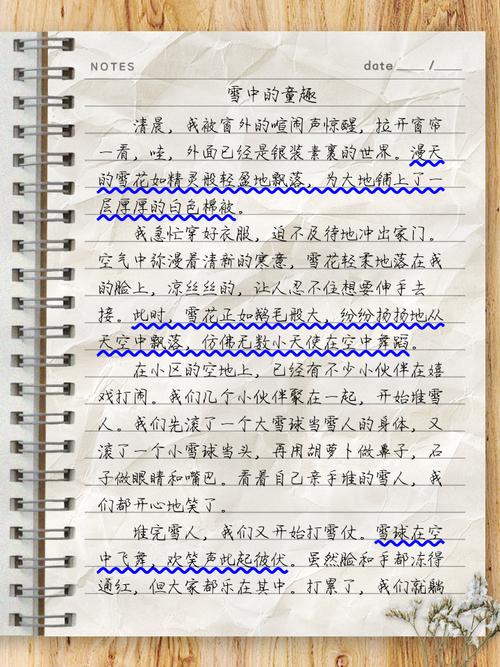 NOTES date ___ / ___
雪中的童趣
清晨，我被窗外的喧闹声惊醒，拉开窗帘
一看，哇，外面已经是银装素裹的世界。漫天
的雪花如精灵般轻盈地飘落，为大地铺上了一
层厚厚的白色棉被。
我急忙穿好衣服，迫不及待地冲出家门。
空气中弥漫着清新的寒意，雪花轻柔地落在我
的脸上，凉丝丝的，让人忍不住想要伸手去
接。此时，雪花正如鹅毛般大，纷纷扬扬地从
天空中飘落，仿佛无数小天使在空中舞蹈。
在小区的空地上，已经有不少小伙伴在嬉
戏打闹。我们几个小伙伴聚在一起，开始堆雪
人。我们先滚了一个大雪球当雪人的身体，又
滚了一个小雪球当头，再用胡萝卜做鼻子，石
子做眼睛和嘴巴。看着自己亲手堆的雪人，我
们都开心地笑了。
堆完雪人，我们又开始打雪仗。雪球在空
中飞舞，欢笑声此起彼伏。虽然脸和手都冻得
通红，但大家都乐在其中。打累了，我们就躺